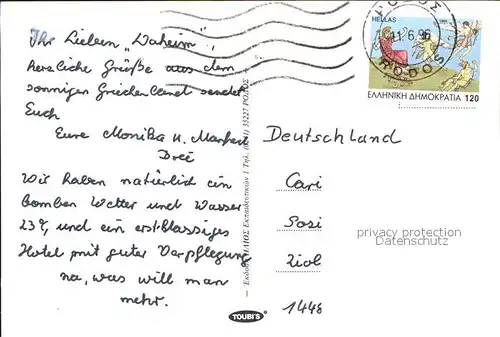 Ihr Lieben "Daheim",
herzliche Grüße aus dem
sonnigen Griechenland sendet
Euch
Eure Monika u. Manfred
Wir haben natürlich ein
bomben Wetter und Wasser
23°, und ein erstklassiges
Hotel mit guter Verpflegung
na, was will man
mehr.
ΡΟΔΟΣ
11.6.96
RODOS
HELLAS
ΕΛΛΗΝΙΚΗ ΔΗΜΟΚΡΑΤΙΑ 120
Deutschland
Cari
Sosi
Ziol
1448
privacy protection
Datenschutz
TOUBI'S